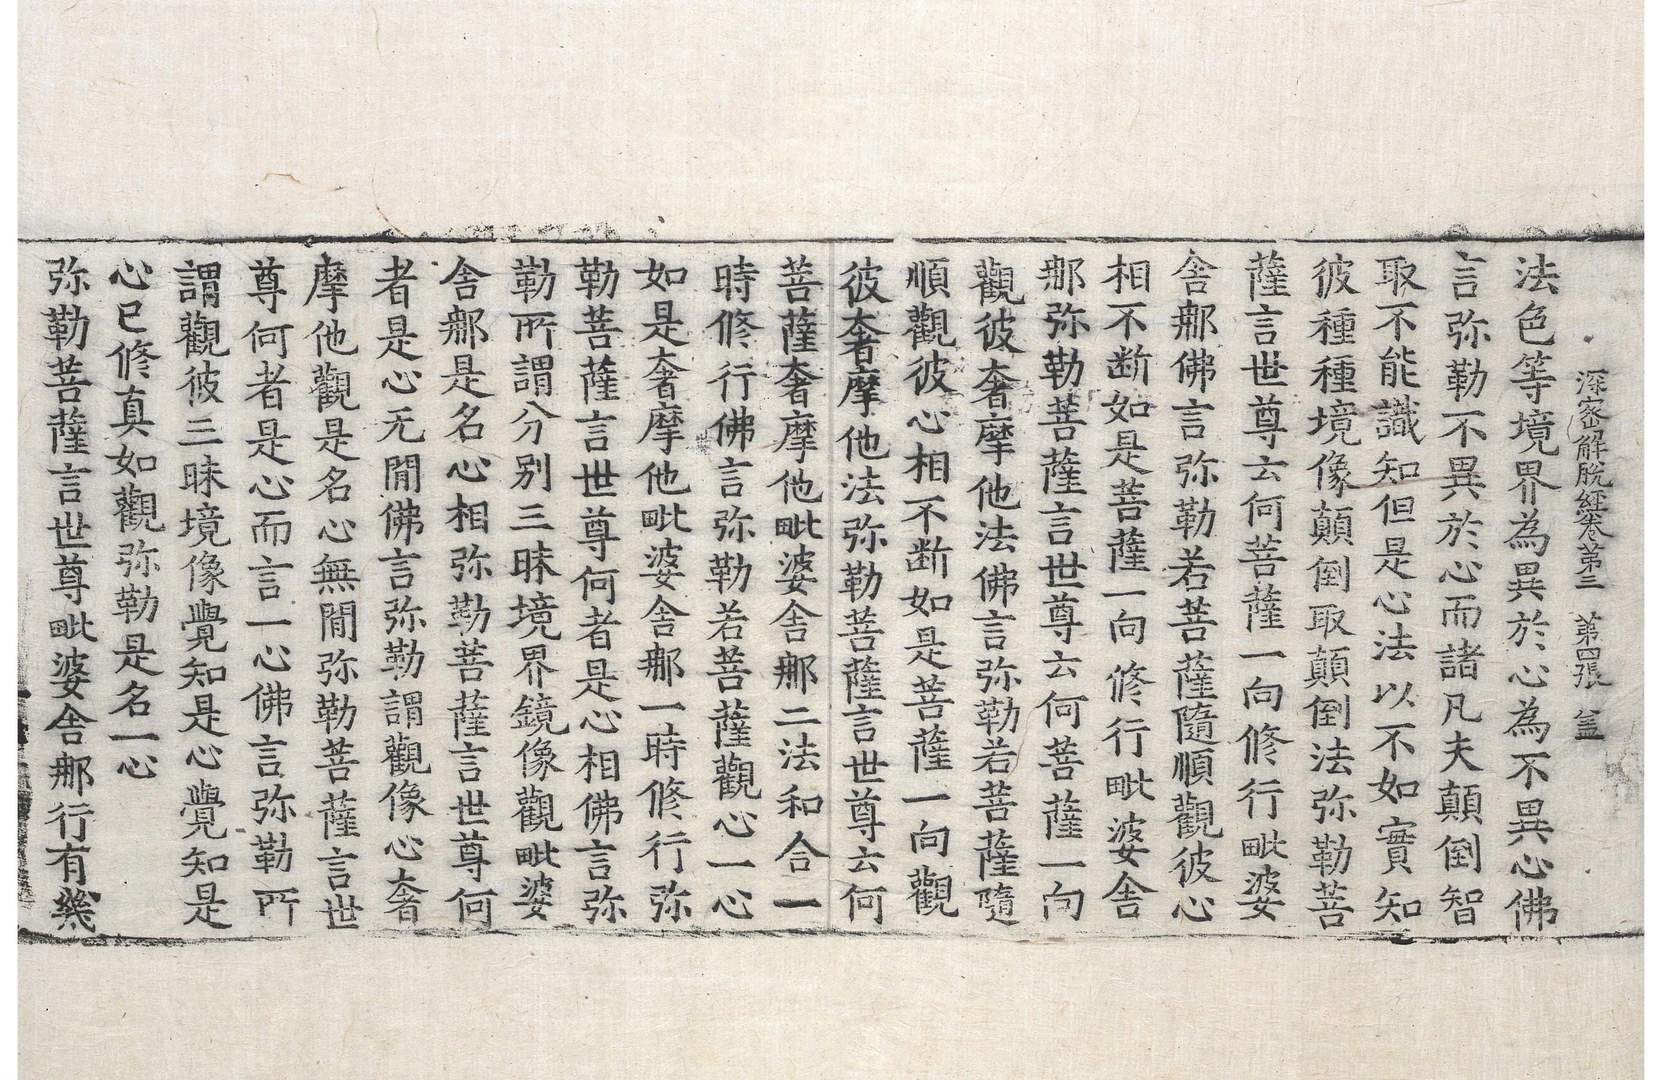 深密解脫經卷第三　第四張　盖
法色等境界為異於心為不異心佛
言弥勒不異於心而諸凡夫顛倒智
取不能識知但是心法以不如實知
彼種種境像顛倒取顛倒法弥勒菩
薩言世尊云何菩薩一向修行毗婆
舍郍佛言弥勒若菩薩隨順觀彼心
相不断如是菩薩一向修行毗婆舍
郍弥勒菩薩言世尊云何菩薩一向
觀彼奢摩他法佛言弥勒若菩薩隨
順觀彼心相不断如是菩薩一向觀
彼奢摩他法弥勒菩薩言世尊云何
菩薩奢摩他毗婆舍郍二法和合一
時修行佛言弥勒若菩薩觀心一心
如是奢摩他毗婆舍郍一時修行弥
勒菩薩言世尊何者是心相佛言弥
勒所謂分别三昧境界鏡像觀毗婆
舍郍是名心相弥勒菩薩言世尊何
者是心无閒佛言弥勒謂觀像心奢
摩他觀是名心無閒弥勒菩薩言世
尊何者是心而言一心佛言弥勒所
謂觀彼三昧境像覺知是心覺知是
心已修真如觀弥勒是名一心
弥勒菩薩言世尊毗婆舍郍行有幾